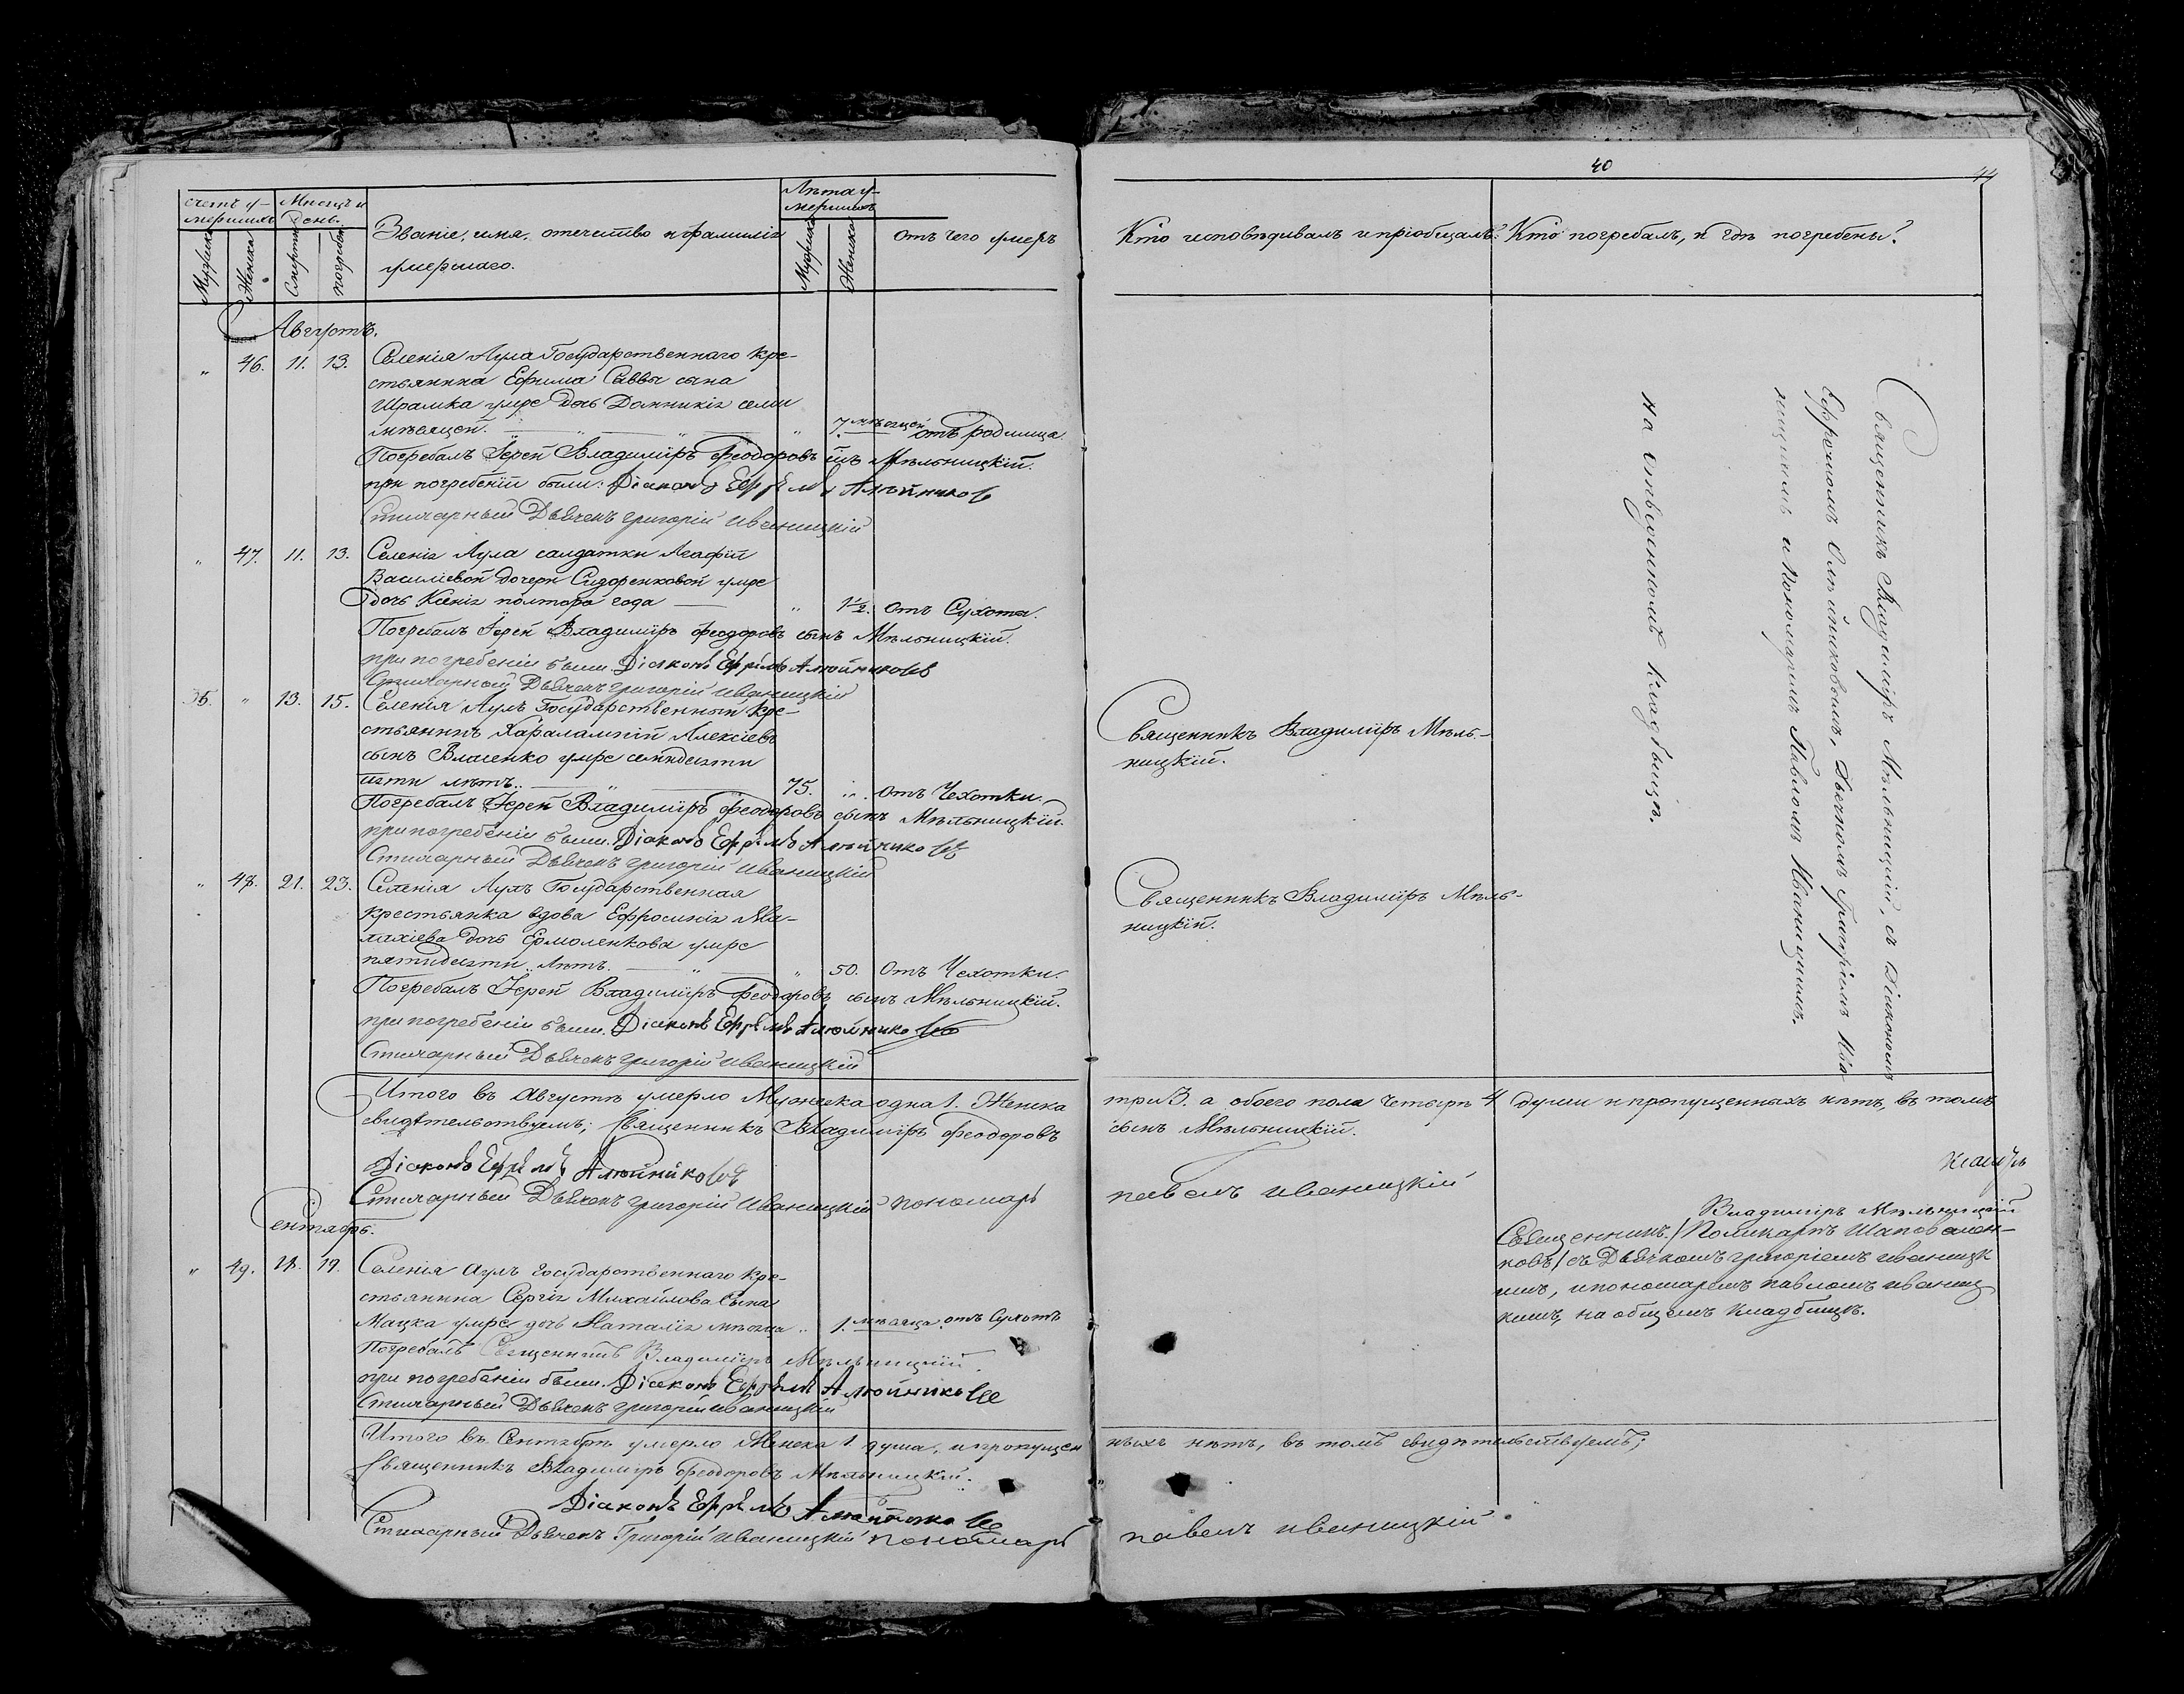 40
44
счетъ у-
мершихъ
Мѣсяцъ и
день.
Мужеска
Женска
Смерти
погребен
Званіе, имя, отечество и фамилія
умершаго.
Лѣта у-
мершихъ
Мужеска
Женска
отъ чего умеръ
Кто исповѣдывалъ и пріобщалъ?
Кто погребалъ, и гдѣ погребены?
Августъ.
" 46. 11. 13. Селенія Аула Государственнаго кре-
стьянина Ефима Саввы сына
Шрамка умре дочь Домникія семи
мѣсяцей. " 7 мѣсяцей отъ родимца.
Погребалъ Іерей Владиміръ Феодоровъ сынъ Мѣльницкій.
при погребеніи были: Діаконъ Ефремъ Алѣйниковъ
Стихарный Дьячекъ Григорій Иваницкій
" 47. 11. 13. Селенія Аула салдатки Агафіи
Василіевой дочери Сидоренковой умре
дочь Ксенія полтора года " 1½. отъ Сухота.
Погребалъ Іерей Владиміръ Феодоровъ сынъ Мѣльницкій.
при погребеніи были. Діаконъ Ефремъ Алѣйниковъ
Стихарный Дьячекъ Григорій Иваницкій
35. " 13. 15. Селенія Аулъ Государственный кре-
стьянинъ Харалампій Алексіевъ
сынъ Власенко умре семидесяти
пяти лѣтъ. 75. " отъ Чехотки.
Погребалъ Іерей Владиміръ Феодоровъ сынъ Мѣльницкій.
при погребеніи были. Діаконъ Ефремъ Алѣйниковъ
Стихарный Дьячекъ Григорій Иваницкій
" 48. 21. 23. Селенія Аулъ Государственная
крестьянка вдова Ефросинія Ма-
лахіева дочь Ермоленкова умре
пятидесяти лѣтъ. " 50. отъ Чехотки.
Погребалъ Іерей Владиміръ Феодоровъ сынъ Мѣльницкій.
при погребеніи были. Діаконъ Ефремъ Алѣйниковъ
Стихарный Дьячекъ Григорій Иваницкій
Священникъ Владиміръ Мѣль-
ницкій.
Священникъ Владиміръ Мѣль-
ницкій.
Священникъ Владиміръ Мѣльницкій, съ Діакономъ
Ефремомъ Олѣйниковымъ, Дьячкомъ Григоріемъ Ива-
ницкимъ и Пономаремъ Павломъ Иваницкимъ.
на отведенномъ кладбищѣ.
Итого въ Августѣ умерло Мужеска одна 1. Женска три 3. а обоего пола четырѣ 4 души и пропущенныхъ нѣтъ, въ томъ
свидѣтельствуемъ; Священникъ Владиміръ Феодоровъ сынъ Мѣльницкій.
Діаконъ Ефремъ Алѣйниковъ
Стихарный Дьячекъ Григорій Иваницкій пономарь павелъ иваницкій
Сентябрь.
" 49. 18. 19. Селенія Аулъ Государственнаго кре-
стьянина Сергія Михайлова сына
Мацка умре дочь Наталія мѣсяца " 1. мѣсяца. отъ Сухотъ
Погребалъ Священникъ Владиміръ Мѣльницкій.
при погребеніи были. Діаконъ Ефремъ Алѣйниковъ
Стихарный Дьячекъ Григорій Иваницкій
Владиміръ Мѣльницкій
Священникъ / Поликарпъ Шаповален-
ковъ / съ Дьячкомъ григоріемъ иваницк
имъ, и пономаремъ павломъ иваниц
кимъ, на общемъ кладбищѣ.
Итого въ Сентябрѣ умерло Женска 1. душа, и пропущен ныхъ нѣтъ, въ томъ свидѣтельствуемъ;
Священникъ Владиміръ Феодоровъ Мѣльницкій.
Діаконъ Ефремъ Алѣйниковъ
Стихарный Дьячекъ Григорій Иваницкій пономарь павелъ иваницкій